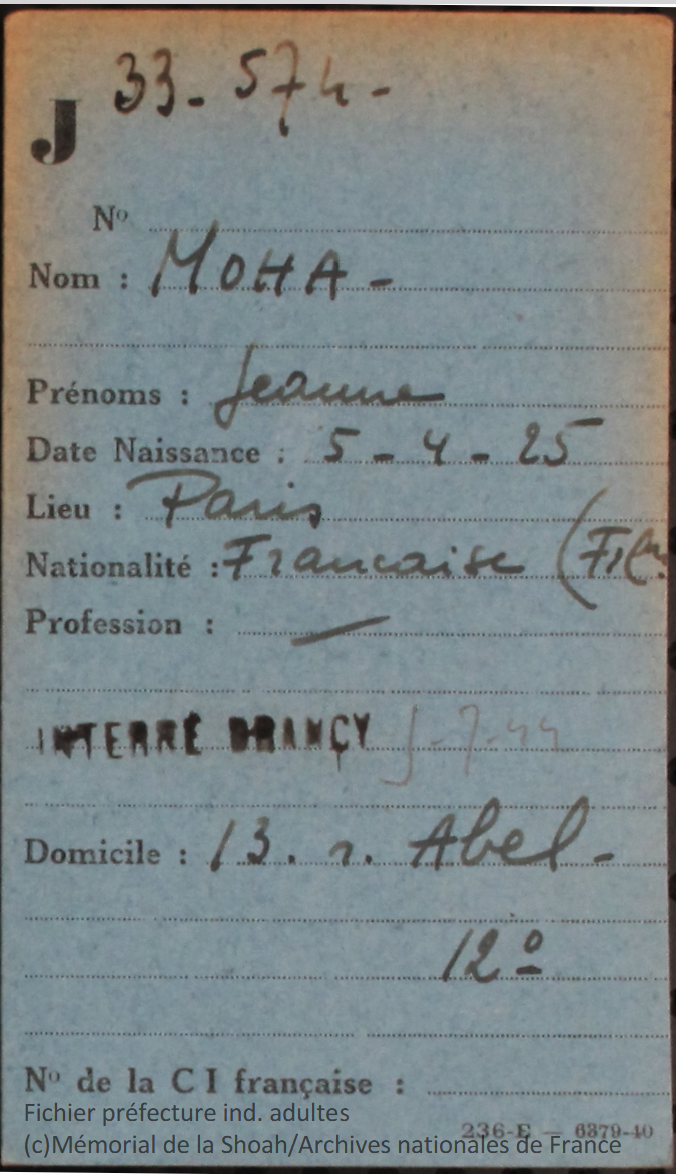 33-574-
J
Nº
Nom : MOHA-
Prénoms : Jeanne
Date Naissance : 5-4-25
Lieu : Paris
Nationalité : Francaise
Profession : /
INTERNÉ DRANCY -7-44
Domicile : 13. r. Abel-
12º
Nº de la C I française :
Fichier préfecture ind. adultes
236-E — 6379-40
(c)Mémorial de la Shoah/Archives nationales de France